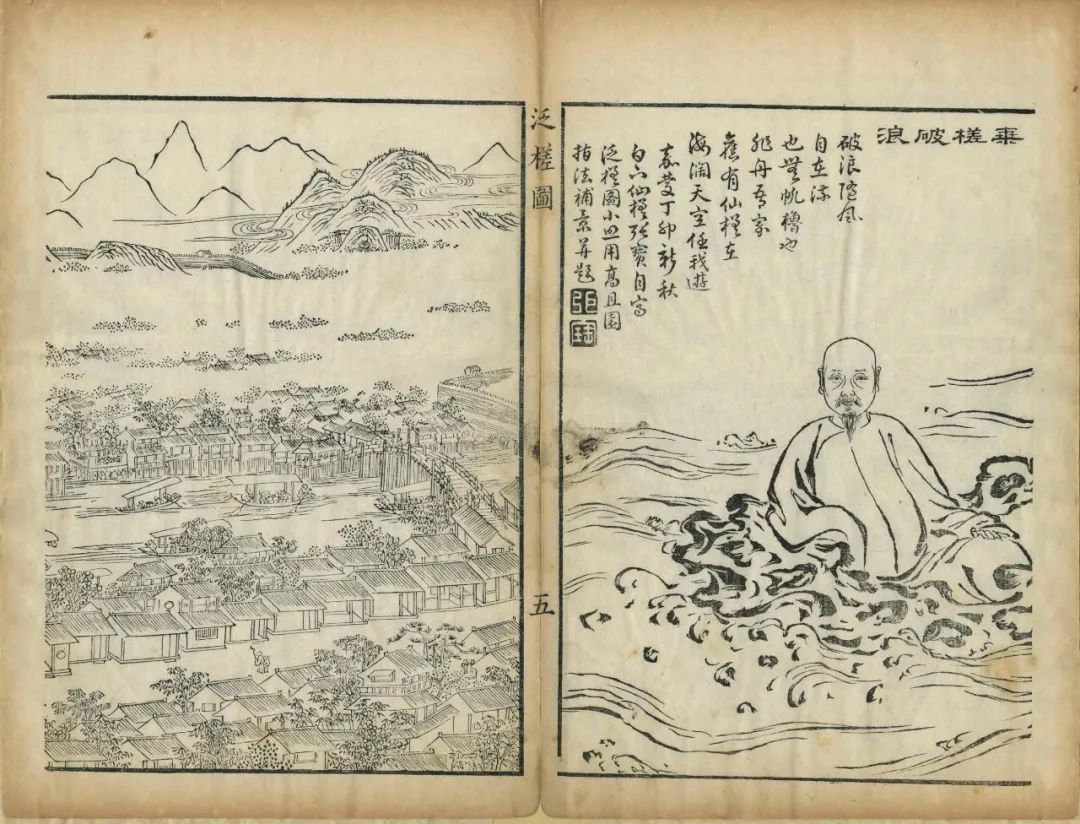 乘槎破浪
破浪隨風
自在浮
也無帆櫓也
非舟吾家
舊有仙槎在
海闊天空任我遊
嘉慶丁卯新秋
白下仙槎張寶自寫
泛槎圖小照用高且園
指法補景并題
張寶
泛槎圖
五